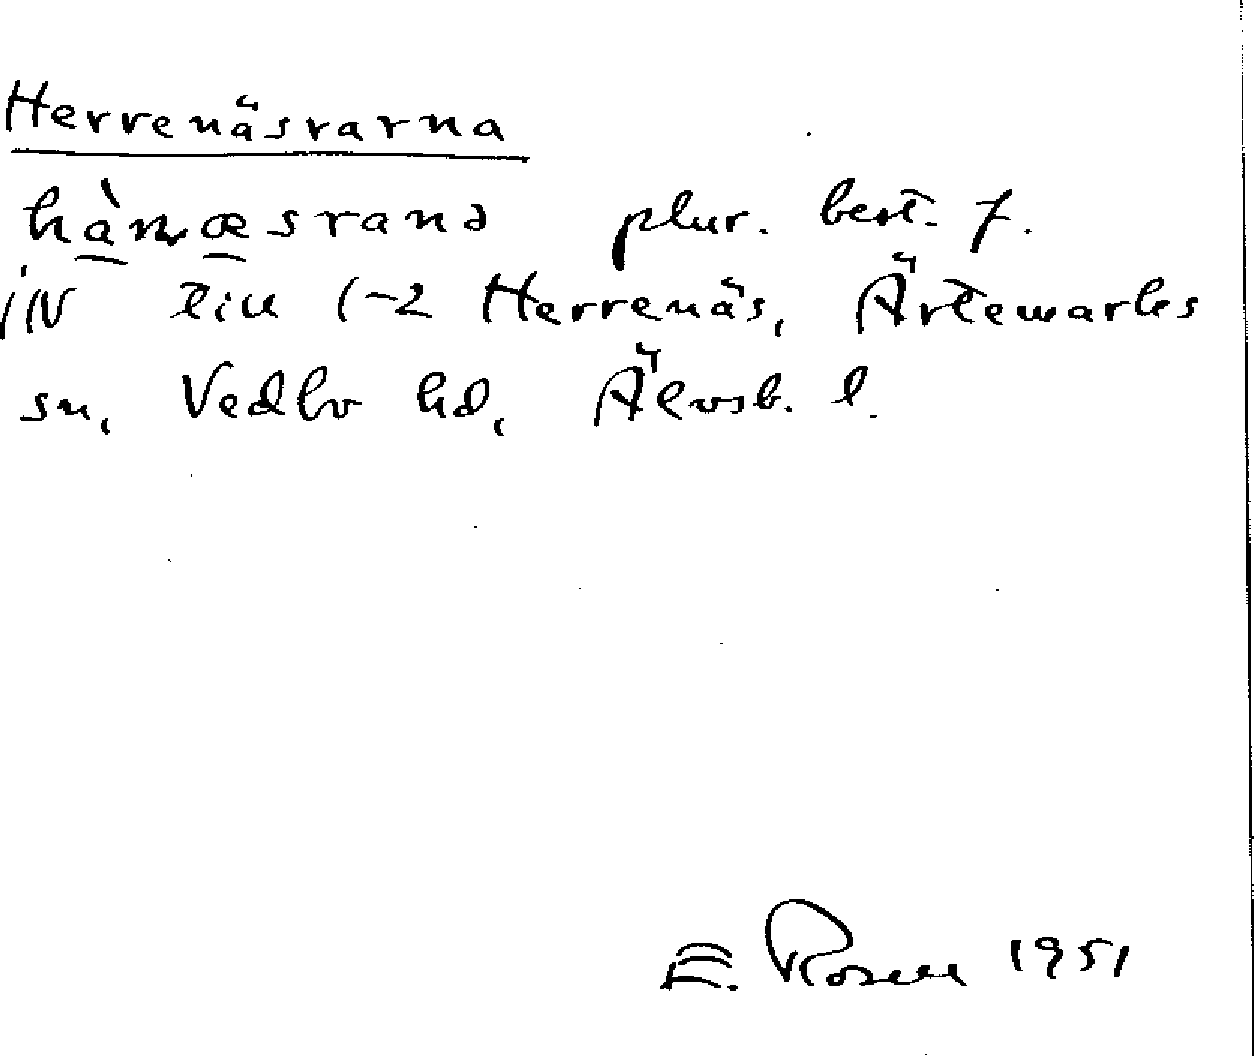 Herrenäsrarna
hànæsranə plur. best. f.
iN till 1-2 Herrenäs, Ärtemarks
sn, Vedbo hd, Älvsb. l.
E. Rosell 1951